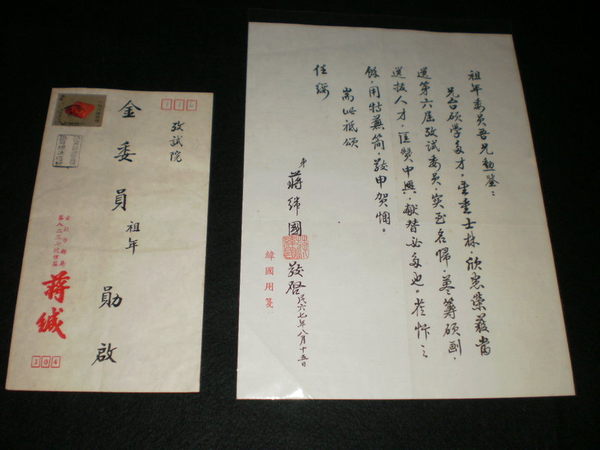 祖年委員吾兄勛鑒：
兄台碩學多才，望重士林，欣悉榮獲當
選第六屆攷試委員，實至名歸，藎籌碩劃，
選拔人才，匡贊中興，獻替必多也。
餘，用特蕪簡，敬申賀悃。
耑此祗頌
任綏
弟 蔣緯國 敬啓 民六七年八月十五日
緯國用箋
攷試院
金委員祖年 勛啟
蔣緘
104